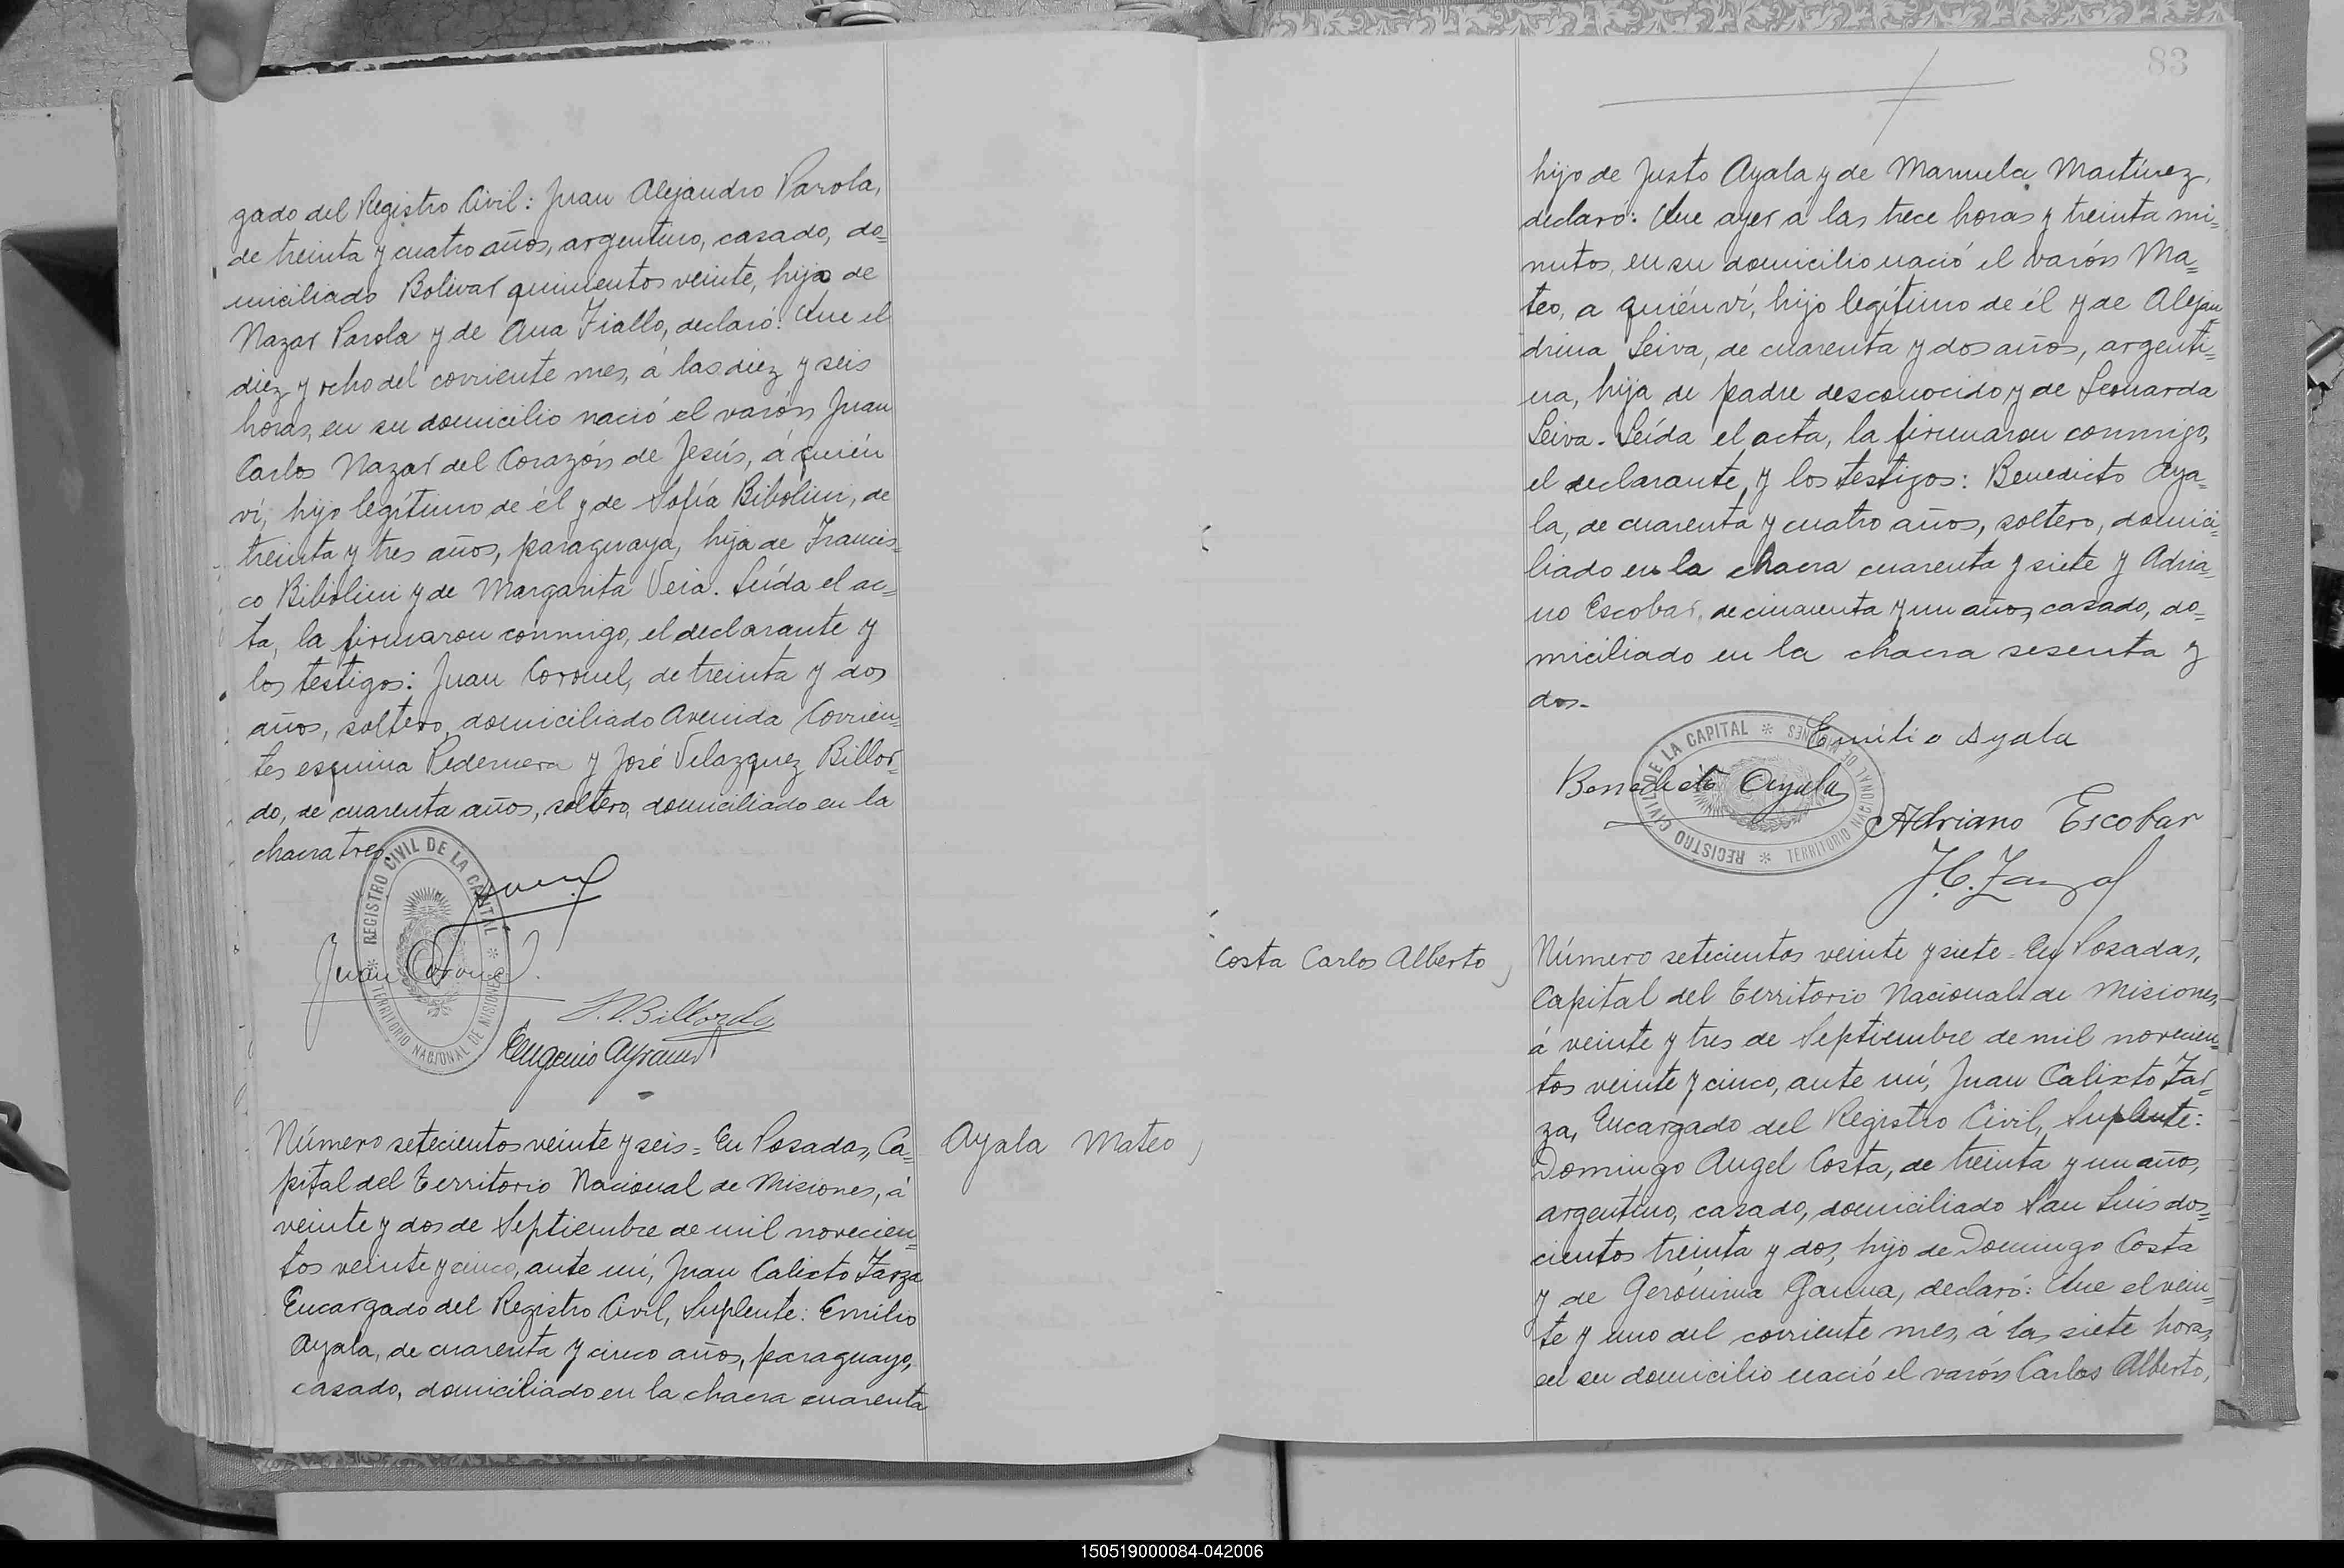 gado del Registro Civil: Juan Alejandro Parola,
de treinta y cuatro años, argentino, casado, do=
miciliado Bolivar quinientos veinte, hijo de
Nazar Parola y de Ana Fiallo, declaró: Que el
diez y ocho del corriente mes, á las diez y seis
horas, en su domicilio nació el varón Juan
Carlos Nazar del Corazón de Jesús, á quién
ví, hijo legítimo de él y de Sofía Bibolini, de
treinta y tres años, paraguaya, hija de Francis=
co Bibolini y de Margarita Veia. Leída el ac=
ta, la firmaron conmigo, el declarante y
los testigos: Juan Coronel, de treinta y dos
años, soltero, domiciliado Avenida Corrien=
tes esquina Pedernera y José Velazquez Billor=
do, de cuarenta años, soltero, domiciliado en la
chacra tres.
REGISTRO CIVIL DE LA CAPITAL * TERRITORIO NACIONAL DE MISIONES *
Juan Coronel
Billordo
Eugenio
Número setecientos veinte y seis = En Posadas, Ca=
pital del territorio Nacional de Misiones, á
veinte y dos de Septiembre de mil novecien=
tos veinte y cinco, ante mí, Juan Calixto Zarza
Encargado del Registro Civil, Suplente: Emilio
Ayala, de cuarenta y cinco años, paraguayo,
casado, domiciliado en la chacra cuarenta
Ayala Mateo
83
hijo de Justo Ayala y de Manuela Martínez,
declaró: Que ayer á las trece horas y treinta mi=
nutos, en su domicilio nació el varón Ma=
teo, a quién ví, hijo legítimo de él y de Alejan=
drina Leiva, de cuarenta y dos años, argenti=
na, hija de padre desconocido y de Leonarda
Leiva. Leída el acta, la firmaron conmigo,
el declarante, y los testigos: Benedicto Aya=
la, de cuarenta y cuatro años, soltero, domici=
liado en la chacra cuarenta y siete y Adria=
no Escobar, de cincuenta y un años, casado, do=
miciliado en la chacra sesenta y
dos.
REGISTRO CIVIL DE LA CAPITAL * TERRITORIO NACIONAL DE MISIONES *
Emilio Ayala
Benedicto Ayala
Adriano Escobar
J.C. Zarza
Costa Carlos Alberto
Número setecientos veinte y siete = En Posadas,
Capital del territorio Nacional de Misiones,
á veinte y tres de Septiembre de mil novecien=
tos veinte y cinco, ante mí, Juan Calixto Zar=
za, Encargado del Registro Civil, Suplente:
Domingo Angel Costa, de treinta y un años,
argentino, casado, domiciliado San Luis dos=
cientos treinta y dos, hijo de Domingo Costa
y de Gerónima Ganna, declaró: Que el vein=
te y uno del corriente mes, á las siete horas,
en su domicilio nació el varón Carlos Alberto,
150519000084-042006